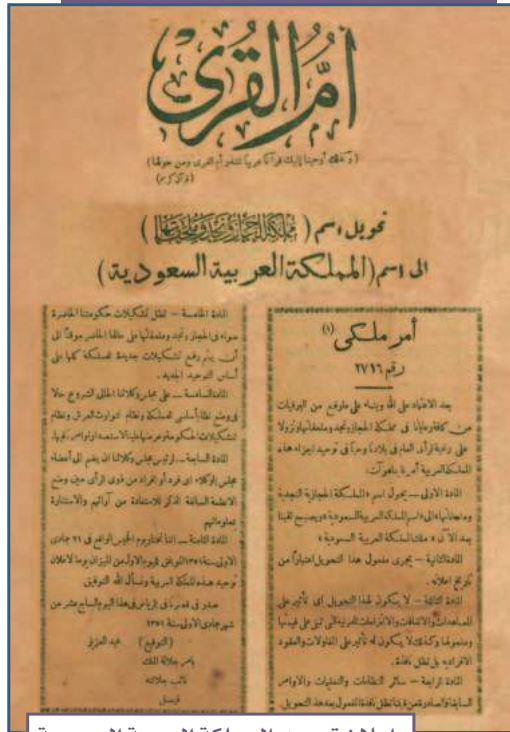 أم القرى
(وكذلك أوحينا إليك قرآنا عربيا لتنذر أم القرى ومن حولها)
(قرآن كريم)
تحويل اسم (مملكة الحجاز ونجد وملحقاتها)
الى اسم (المملكة العربية السعودية)
أمر ملكى (١)
رقم ٢٧١٦
بعد الاعتماد على الله وبناء على مارفع من البرقيات
من كافة رعايانا فى مملكة الحجاز ونجد وملحقاتها ونزولا
على رغبة الرأى العام فى بلادنا وحبا فى توحيد اجزاء هذه
المملكة العربية أمرنا بما هو آت:
المادة الاولى – يحول اسم «المملكة الحجازية النجدية
وملحقاتها» الى اسم «المملكة العربية السعودية» ويصبح لقبنا
بعد الآن «ملك المملكة العربية السعودية»
المادة الثانية – يجرى مفعول هذا التحويل اعتبارا من
تاريخ اعلانه.
المادة الثالثة – لا يكون لهذا التحويل أى تأثير على
المعاهدات والاتفاقات والالتزامات الدولية التى تبقى على قيمتها
ومفعولها وكذلك لا يكون له تأثير على المقاولات والعقود
الافرادية بل تظل نافذة.
المادة الرابعة – سائر النظامات والتعليمات والاوامر
السابقة والصادرة من قبلنا تظل نافذة المفعول بعد هذا التحويل.
المادة الخامسة – تظل تشكيلات حكومتنا الحاضرة
سواء فى الحجاز ونجد وملحقاتها على حالها الحاضر موقتا الى
أن يتم وضع تشكيلات جديدة للمملكة كلها على
أساس التوحيد الجديد.
المادة السادسة – على مجلس وكلائنا الحالى الشروع حالا
فى وضع نظام أساسى للمملكة ونظام لتوارث العرش ونظام
لتشكيلات الحكومة وعرضها علينا لاستصدار أوامرنا فيها.
المادة السابعة – لرئيس مجلس وكلائنا ان يضم الى أعضاء
مجلس الوكلاء اى فرد أو افراد من ذوى الرأى حين وضع
الانظمة السالفة الذكر للاستفادة من آرائهم والاستنارة
بمعلوماتهم
المادة الثامنة – اننا نختار يوم الخميس الواقع فى ٢١ جمادى
الاولى سنة ١٣٥١ الموافق لليوم الاول من الميزان يوما لاعلان
توحيد هذه المملكة العربية ونسأل الله التوفيق
صدر فى قصرنا فى الرياض فى هذا اليوم السابع عشر من
شهر جمادى الاولى سنة ١٣٥١
(التوقيع) عبد العزيز
بامر جلالة الملك
نائب جلالته
فيصل